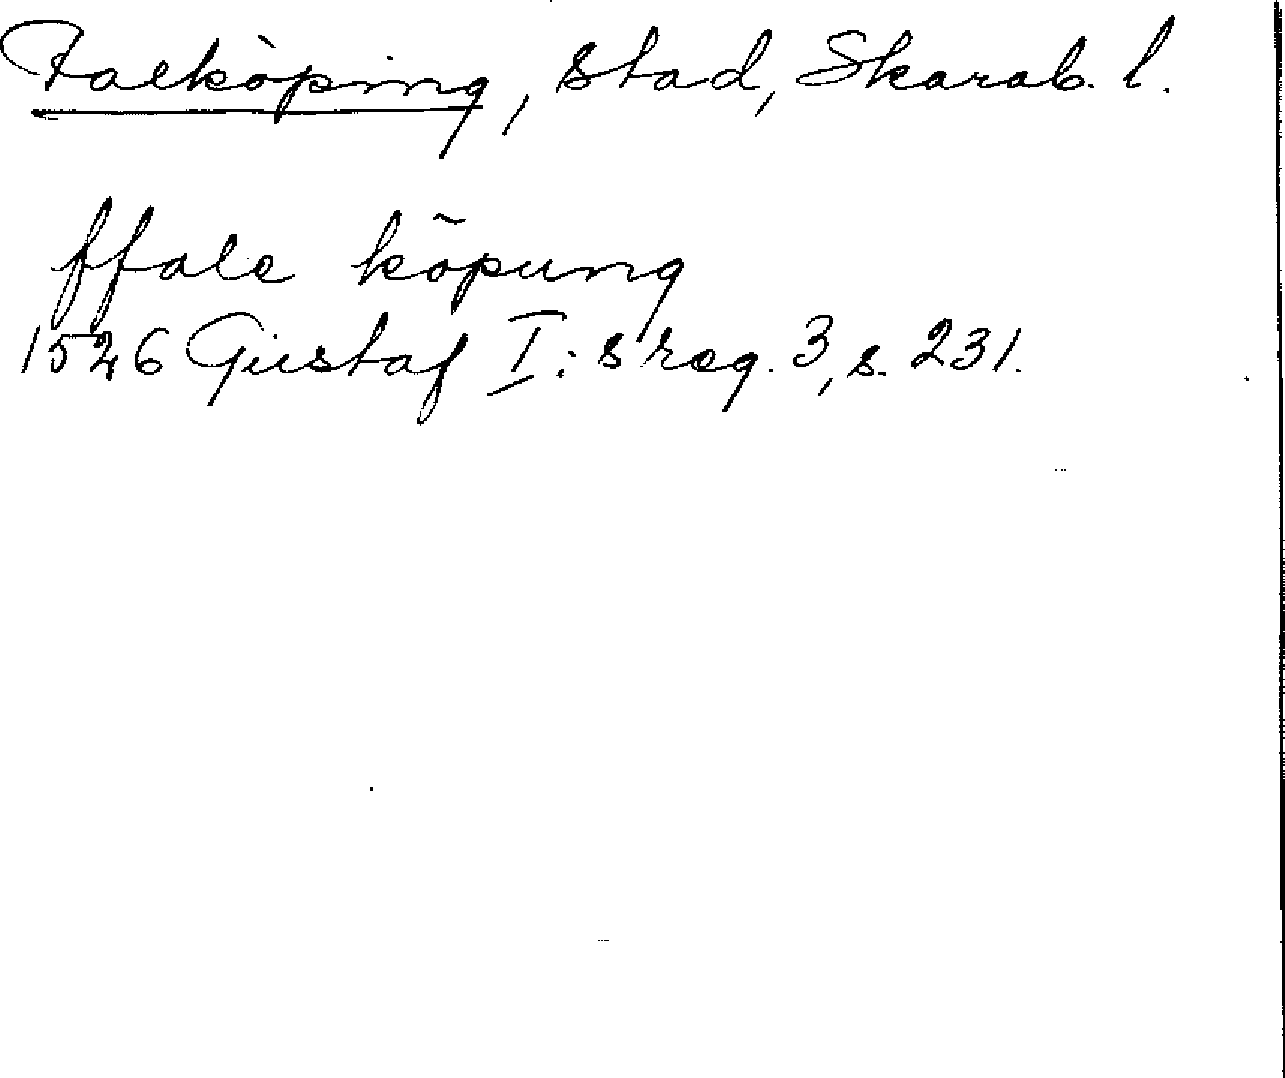 Falköping, stad, Skarab. l.
ffale köpung
1526 Gustaf I:s reg. 3, s. 231.